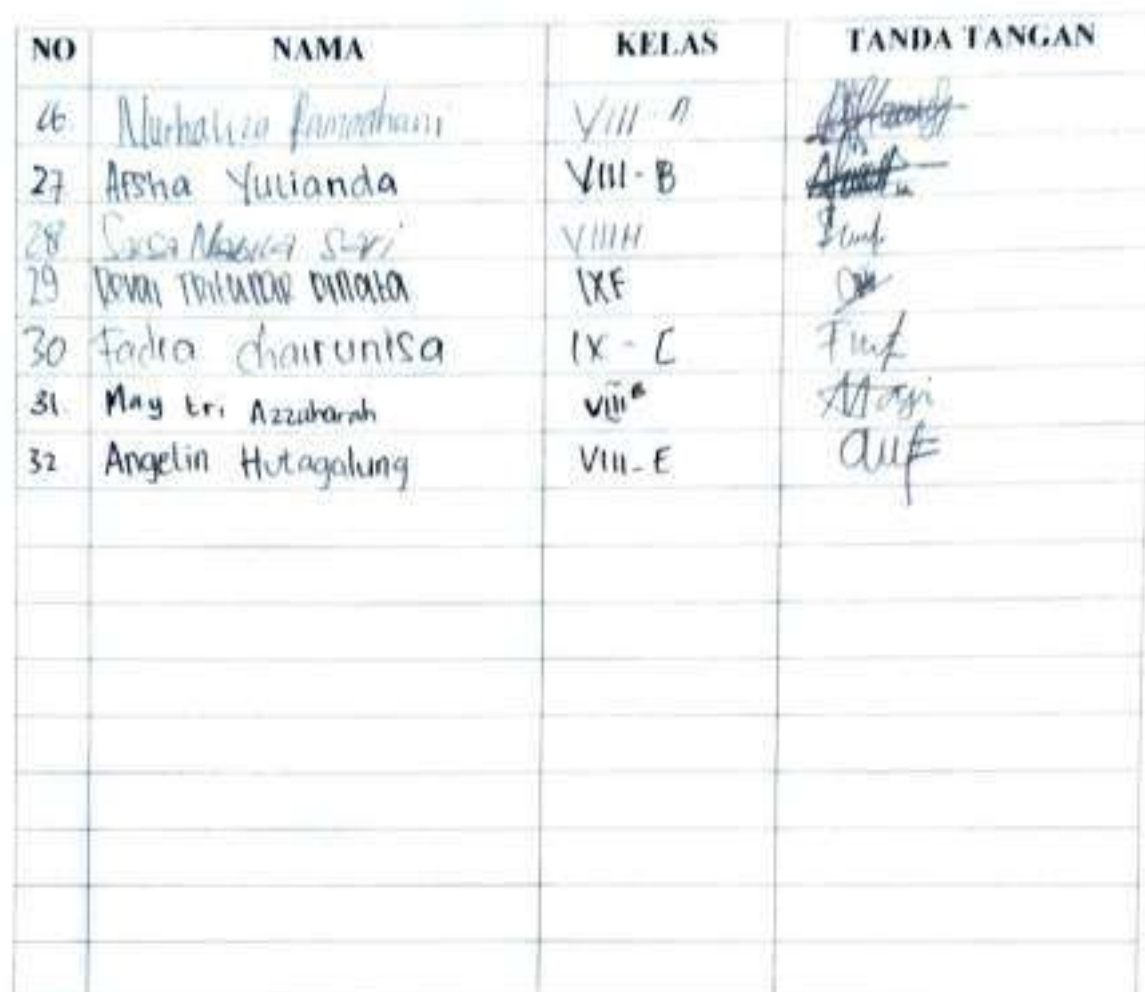 NO NAMA KELAS TANDA TANGAN
26. Nurhaliza Ramadhani VIII
27 Arsha Yulianda VIII - B
28 Salsa Sari VIIIH
29 Dinata IXF
30 Fadia chairunisa IX - C
31. May tri Azzuharah VIII
32 Angelin Hutagalung VIII - E